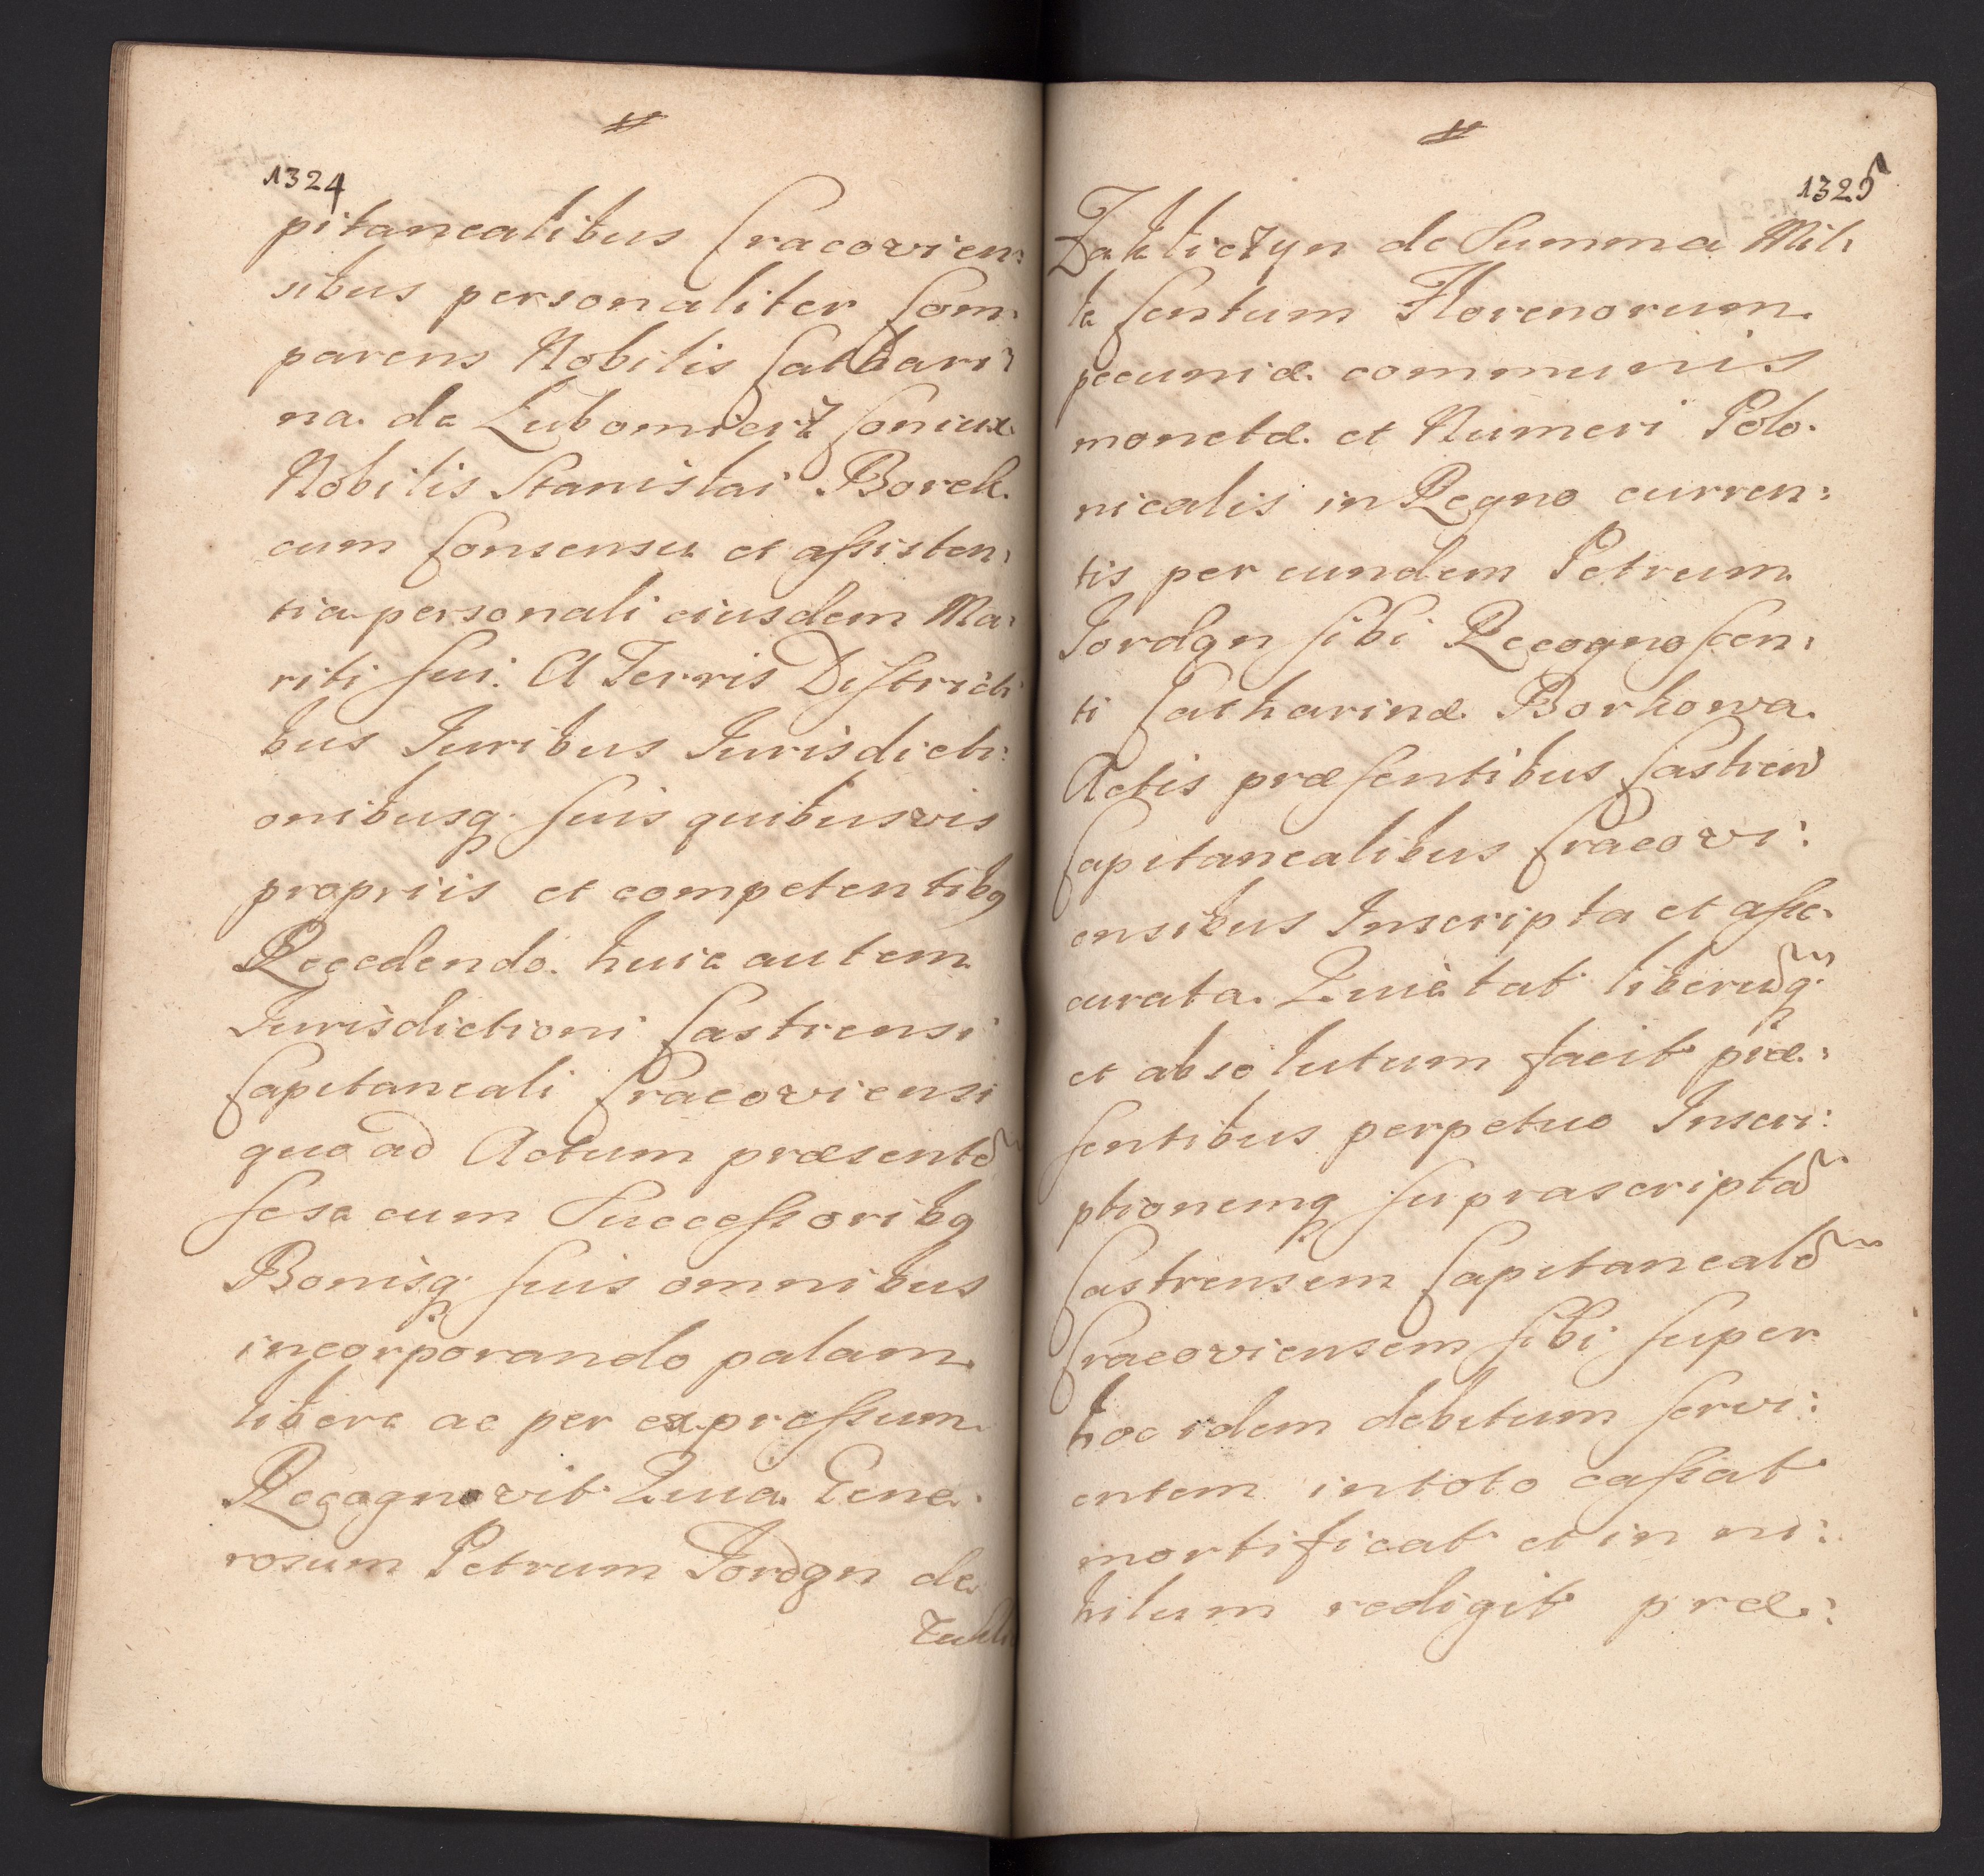 #
1324
pitanealibus Cracovien:
sibus personaliter Com:
parens Nobilis Cathari:
na de Lubomierz Coniux
Nobilis Stanislai Borek
cum Consensu et assisten:
tia personali eiusdem Ma:
riti sui. A Terris Districti
bus Iuribus Iurisdicti:
onibusq; suis quibusvis
propriis et competentibq
Recedendo. huic autem
Iurisdictioni Castrensi
Capitaneali Cracoviensi
quo ad Actum præsentē
sese cum Successoribq
Bonisq; suis omnibus
incorporando palam
libere ac per expressum
Recognovit Quia Gene:
rosum Petrum Jordan de
Zakli
#
1325
Zakliczyn de Summa Mil:
le Centum Florenorum
pecuniæ communis
monetæ et Numeri Polo:
nicalis in Regno curren:
tis per eundem Petrum
Jordan sibi Recognoscen:
ti Catharinæ Borkowa
Actis præsentibus Castren
Capitanealibus Cracovi:
ensibus Inscripta et asse:
curata. Quietat liberūq;
et absolutum facit præ:
sentibus perpetuo Inscri:
ptionemq suprascriptā
Castrensem Capitanealē
Cracoviensem sibi super
hoc idem debitum servi:
entem intoto cassat
mortificat et in ni:
hilum redigit præ: